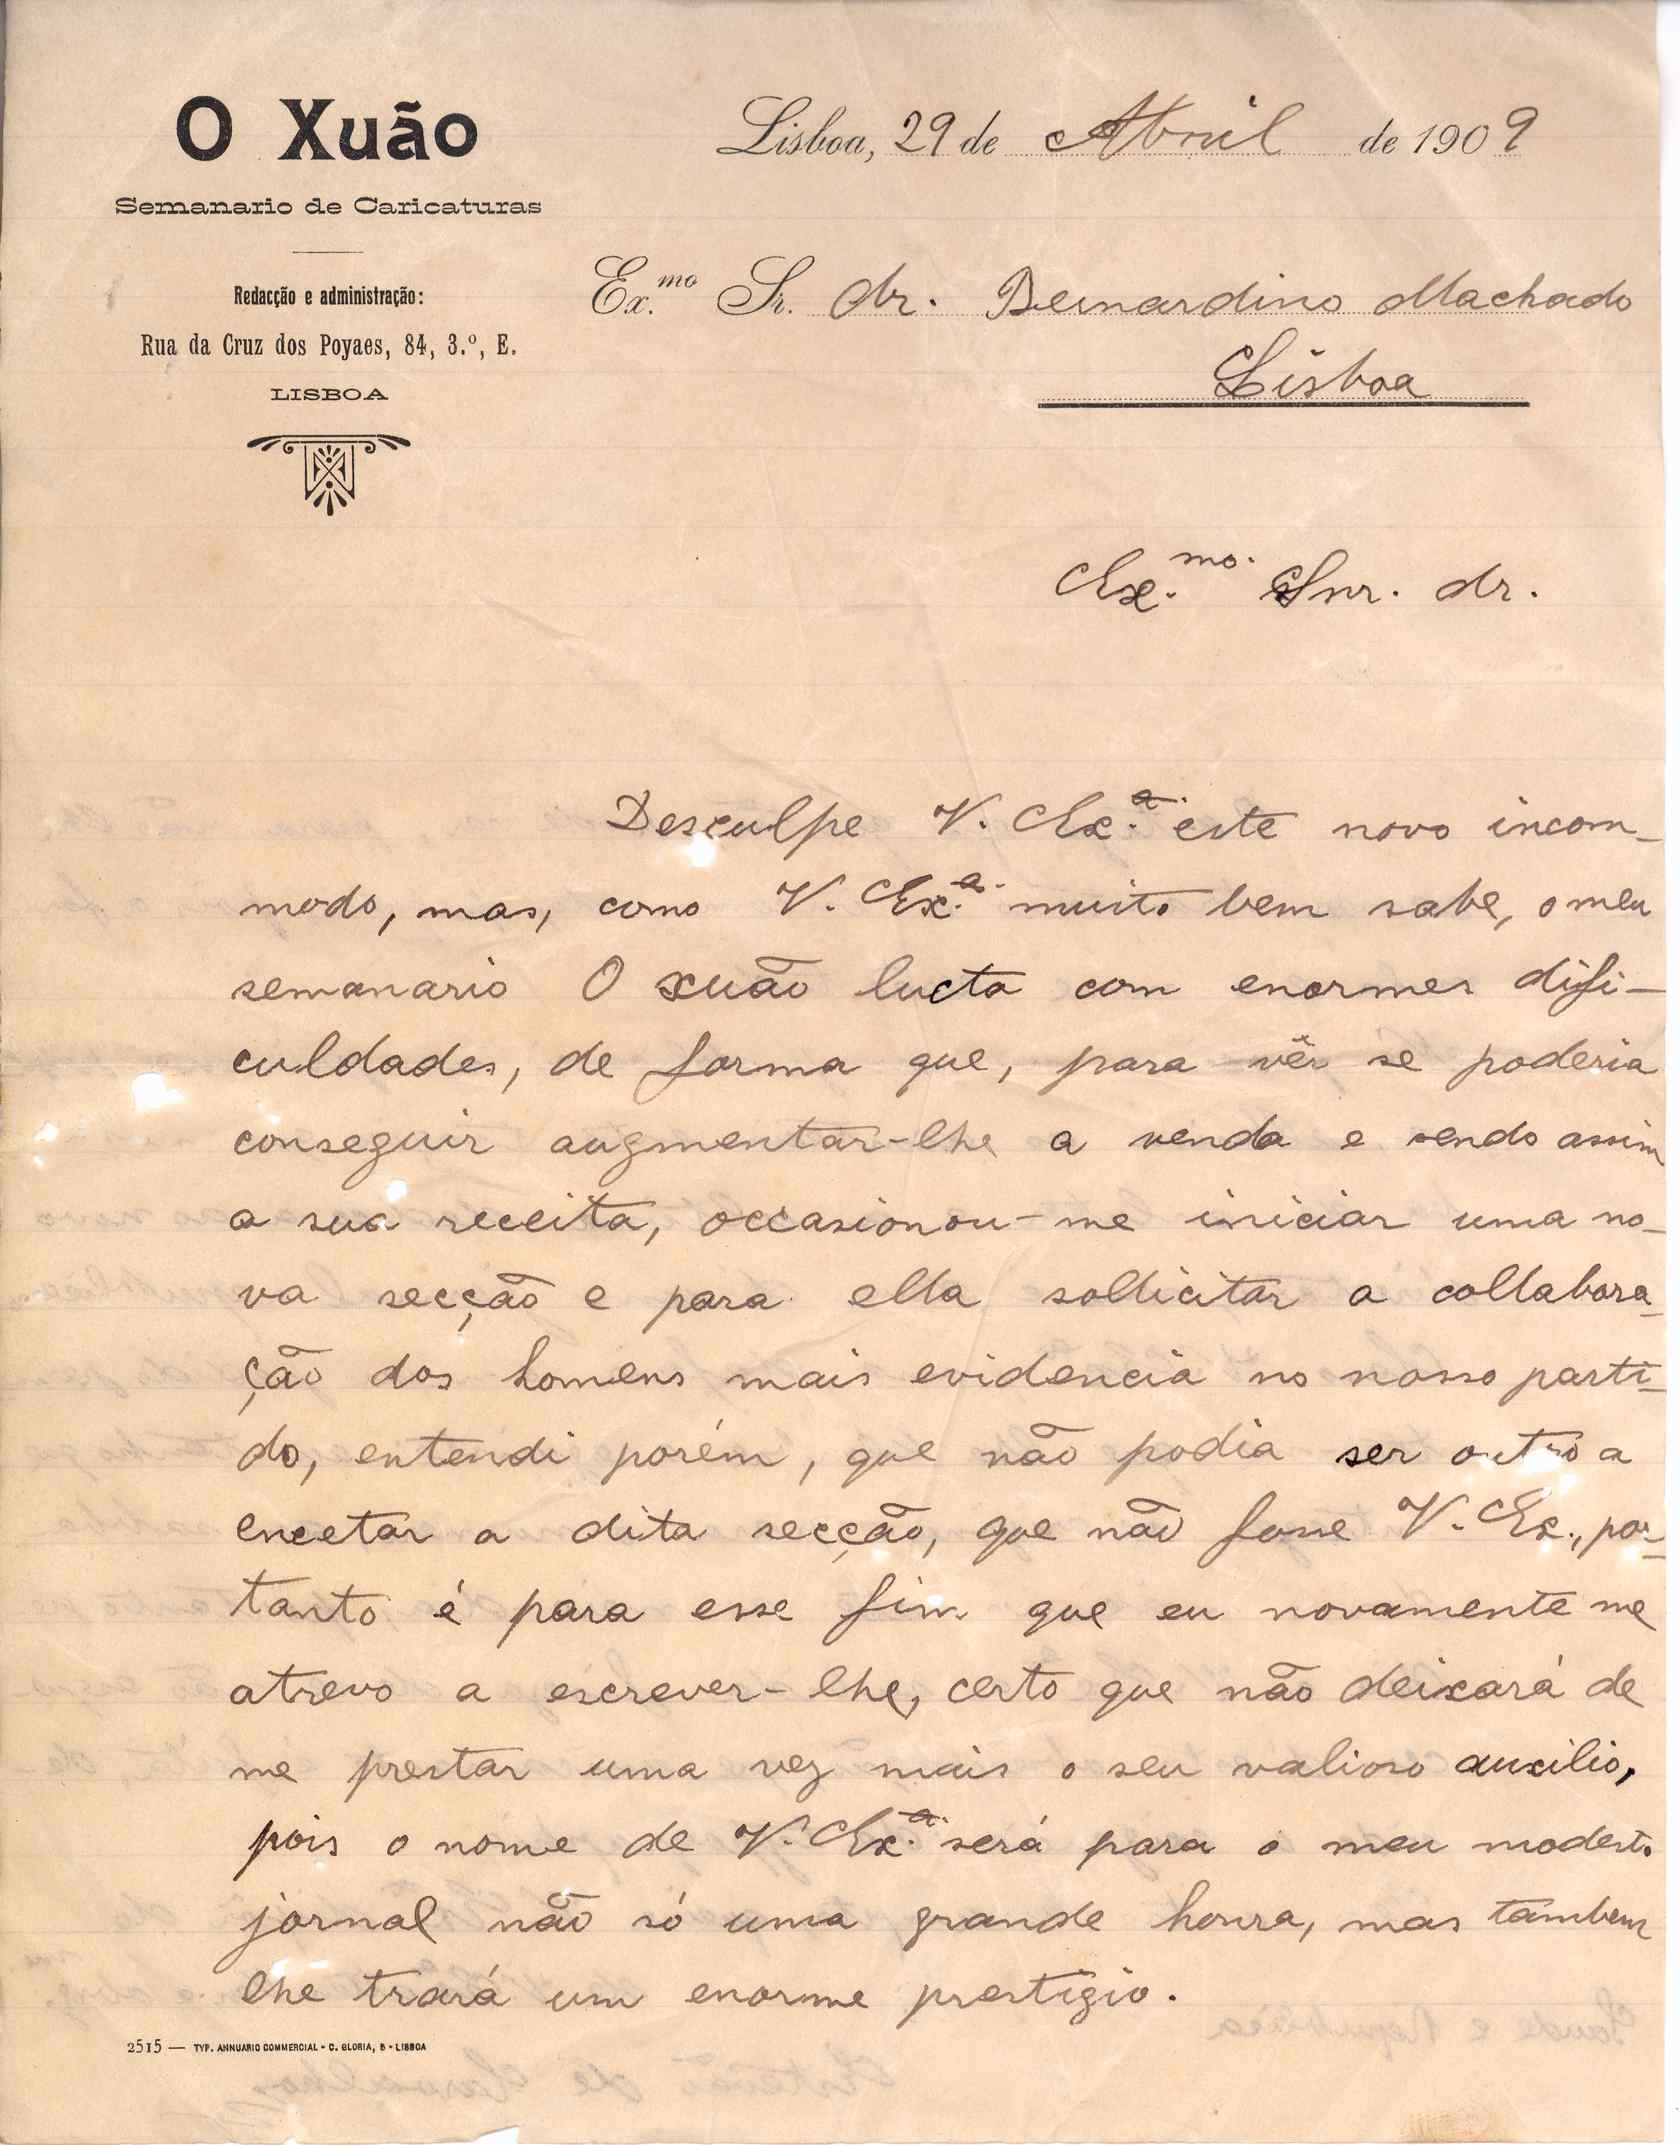 O Xuão
Semanario de Caricaturas
Redacção e administração:
Rua da Cruz dos Poyaes, 84, 3.º, E.
LISBOA
Lisboa, 29 de Abril de 1909
Ex.mo Sr. dr. Bernardino Machado
Lisboa
Ex.mo Snr. dr.
Desculpe V. Ex.a este novo incom-
modo, mas, como V. Ex.a muito bem sabe, o meu
semanario O Xuão lucta com enormes difi-
culdades, de forma que, para vêr se poderia
conseguir augmentar-lhe a venda e sendo assim
a sua receita, occasionou-me iniciar uma no-
va secção e para ella sollicitar a collabora-
ção dos homens mais evidencia no nosso parti-
do, entendi porém, que não podia ser outro a
encetar a dita secção, que não fosse V. Ex., por-
tanto é para esse fim que eu novamente me
atrevo a escrever-lhe, certo que não deixará de
me prestar uma vez mais o seu valioso auxilio,
pois o nome de V. Ex.a será para o meu modesto
jornal não só uma grande honra, mas tambem
lhe trará um enorme prestigio.
2515 — TYP. ANNUARIO COMMERCIAL - C. GLORIA, 5 - LISBOA